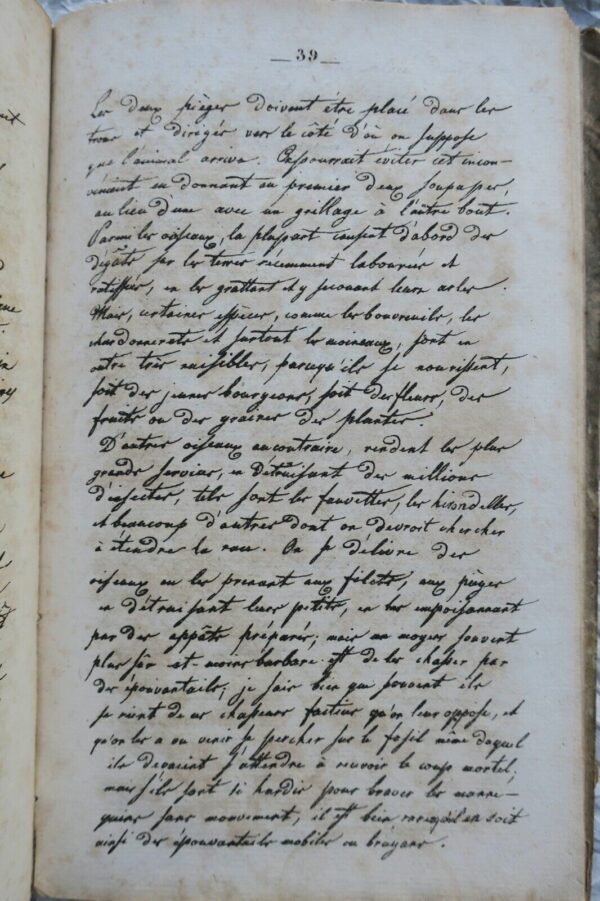 — 39 —
Les deux pièger doivent être placé dans les
trous et dirigés vers le côté d'où on suppose
que l'animal arriva. On pourrait éviter cet incon-
vénient en donnant au premier deux soupapes,
au lieu d'une avec un grillage à l'autre bout.
Parmi les oiseaux, la pluspart causent d'abord des
dégâts sur les terres récemment labourées et
ratissées, en les grattant et y secouant leurs ailes.
Mais, certaines espèces, comme les bouvreuils, les
chardonnerets et surtout les moineaux, sont en
outre très nuisibles, parcequ'ils se nourrissent,
soit des jeunes bourgeons, soit des fleurs, des
fruits ou des graines des plantes.
D'autres oiseaux au contraire, rendent les plus
grands services, en détruisant des millions
d'insectes, tels sont les fauvettes, les hirondelles,
et beaucoup d'autres dont on devroit chercher
à étendre la race. On se délivre des
oiseaux en les prenant aux filets, aux pièges
en détruisant leurs petits, en les empoisonnant
par des appâts préparés; mais un moyen souvent
plus sûr et moins barbare est de les chasser par
des épouvantails; je sais bien que souvent ils
se rient de ces chasseurs factices qu'on leur oppose, et
qu'on les a vu venir se percher sur le fusil même duquel
ils devaient s'attendre à recevoir le coup mortel.
mais s'ils sont si hardis pour braver les manne-
quins sans mouvement, il est bien rare qu'il en soit
ainsi des épouvantails mobiles ou bruyans.